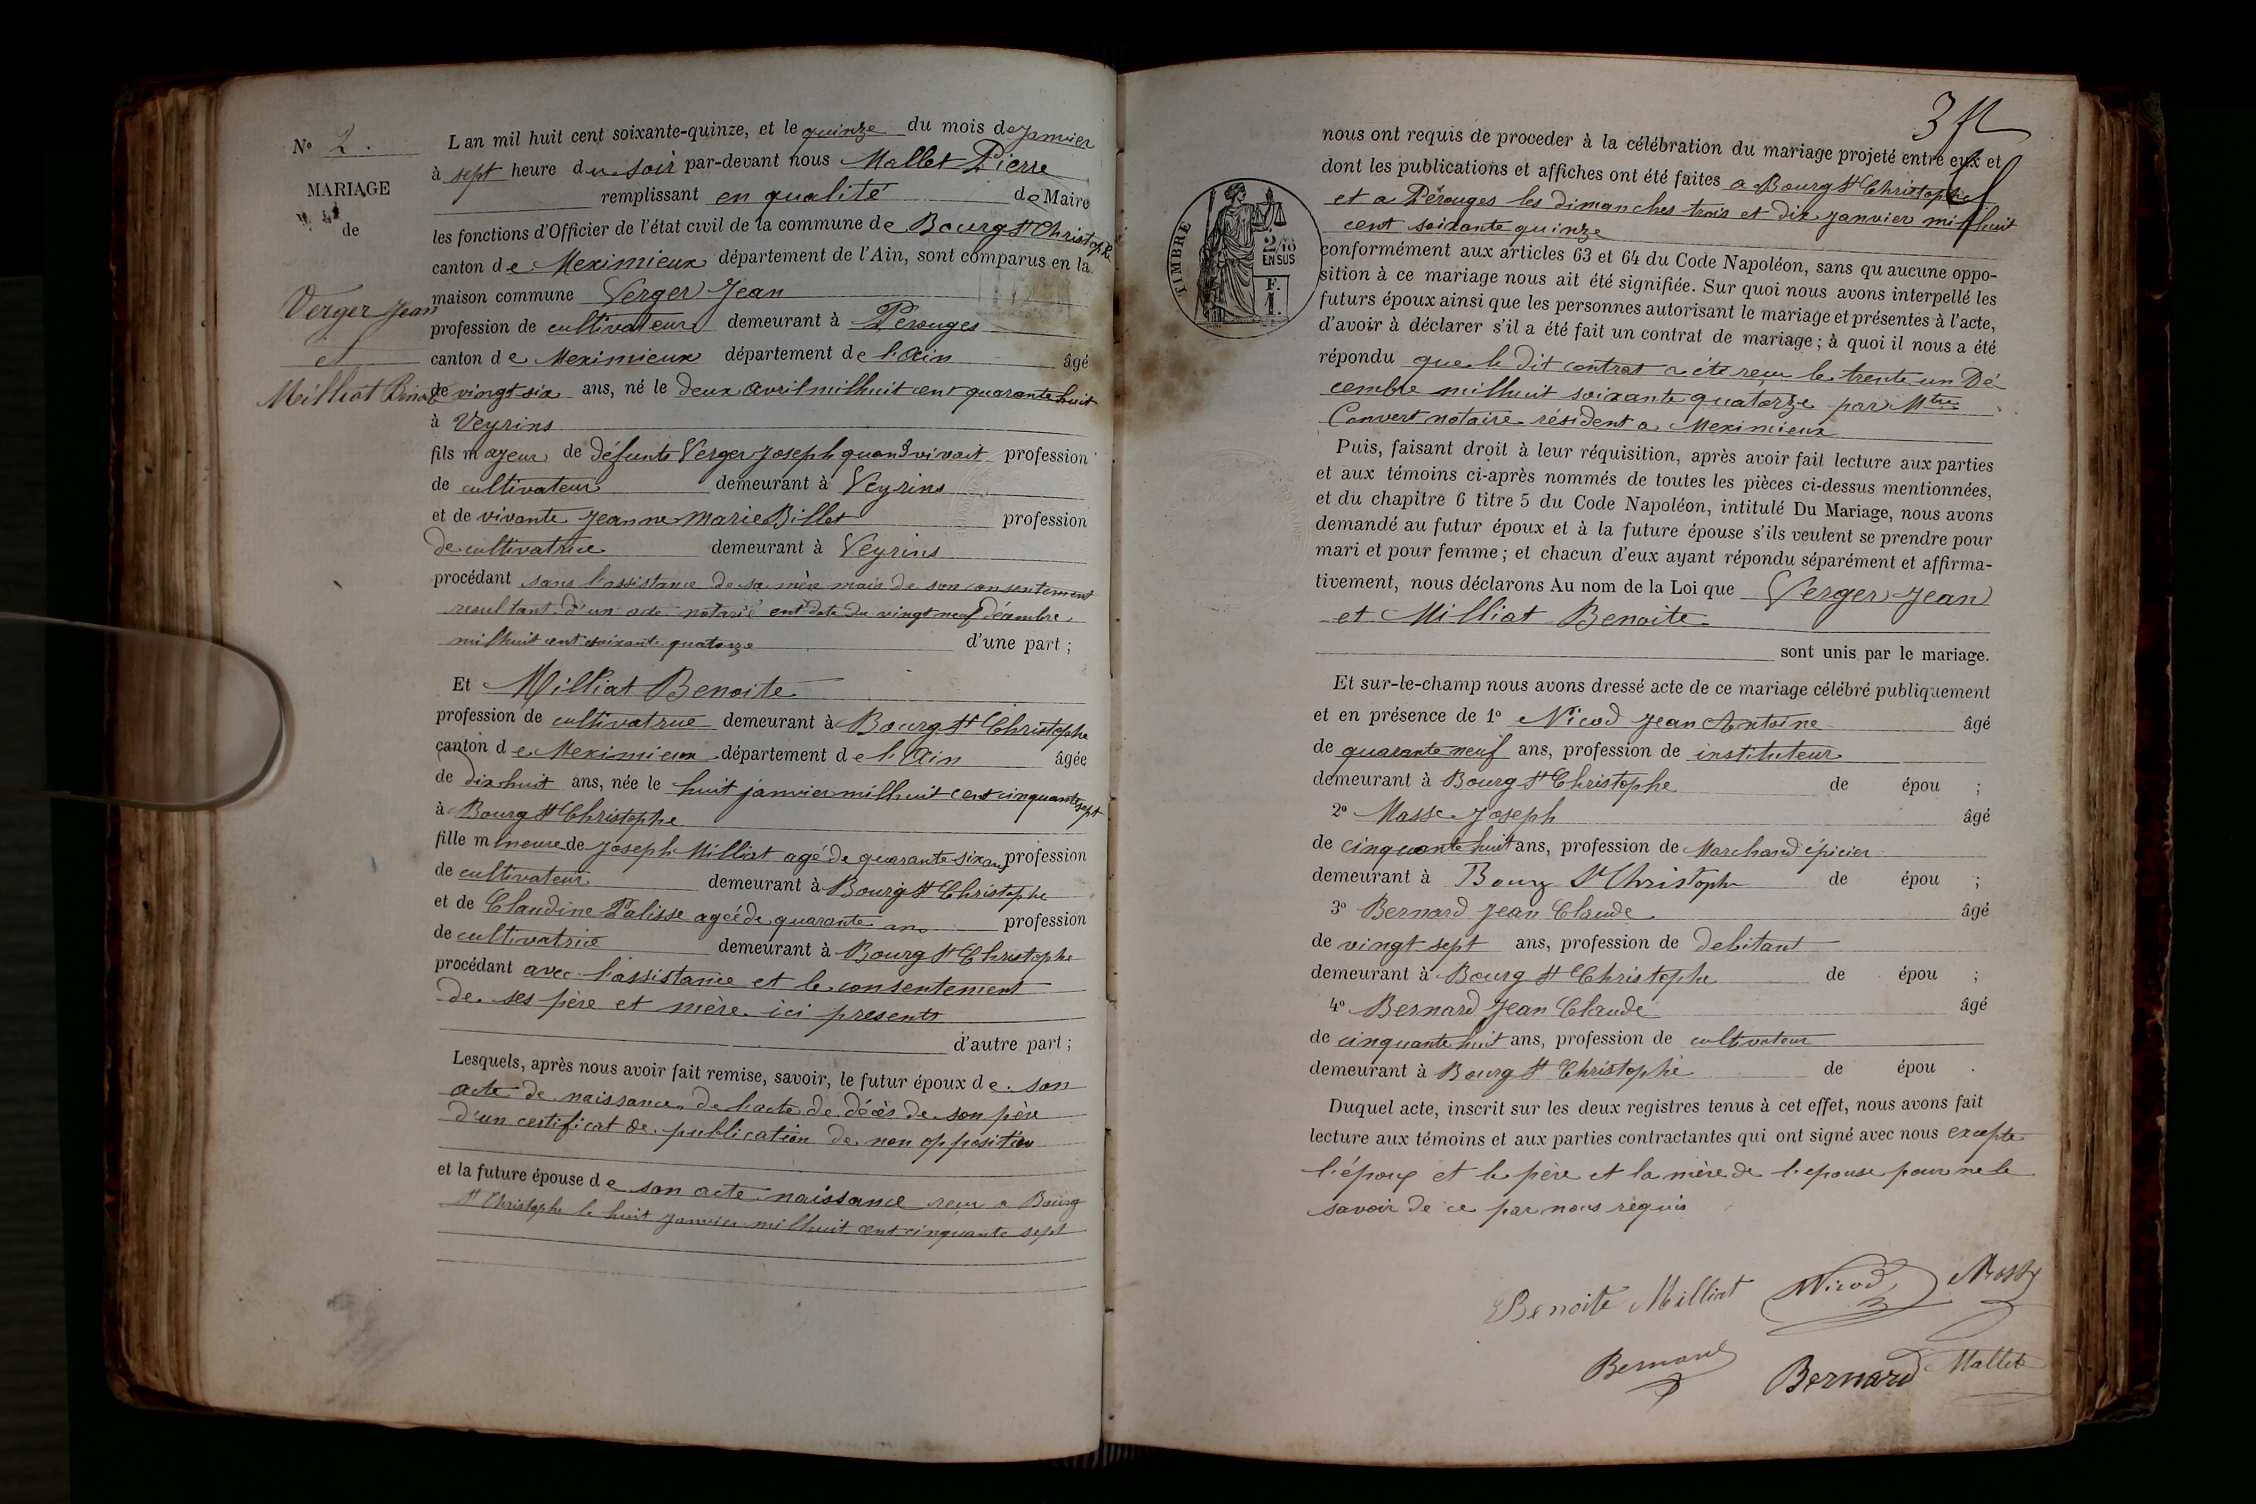 N° 2.
MARIAGE
de
Verger Jean
et
Milliat Benoite
L an mil huit cent soixante-quinze, et le quinze du mois de janvier
à sept heure du soir par-devant nous Mallet Pierre
remplissant en qualité de Maire
les fonctions d'Officier de l'état civil de la commune de Bourg St Christophe
canton de Meximieux département de l'Ain, sont comparus en la
maison commune Verger Jean
profession de cultivateur demeurant à Pérouges
canton de Meximieux département de l'Ain âgé
de vingt six ans, né le deux avril mil huit cent quarante huit
à Veyrins
fils majeur de défunt Verger Joseph quand vivait profession
de cultivateur demeurant à Veyrins
et de vivante Jeanne Marie Billet profession
de cultivatrice demeurant à Veyrins
procédant sans l'assistance de sa mère mais de son consentement
resultant d'un acte notarié en date du vingt neuf décembre
mil huit cent soixante quatorze d'une part ;
Et Milliat Benoite
profession de cultivatrice demeurant à Bourg St Christophe
canton de Meximieux département de l'Ain âgée
de dix huit ans, née le huit janvier mil huit cent cinquante sept
à Bourg St Christophe
fille mineure de Joseph Milliat agé de quarante six ans profession
de cultivateur demeurant à Bourg St Christophe
et de Claudine Palisse agéé de quarante ans profession
de cultivatrice demeurant à Bourg St Christophe
procédant avec l'assistance et le consentement
de ses père et mère ici presents
d'autre part ;
Lesquels, après nous avoir fait remise, savoir, le futur époux de son
acte de naissance de l'acte de décès de son père
d'un certificat de publication de non opposition
et la future épouse de son acte naissance reçu a Bourg
St Christophe le huit janvier mil huit cent cinquante sept
TIMBRE
2/10
EN SUS
F.
1.
nous ont requis de proceder à la célébration du mariage projeté entre eux et
dont les publications et affiches ont été faites a Bourg St Christophe
et a Pérouges les dimanches trois et dix janvier mil huit
cent soixante quinze
conformément aux articles 63 et 64 du Code Napoléon, sans qu aucune oppo-
sition à ce mariage nous ait été signifiée. Sur quoi nous avons interpellé les
futurs époux ainsi que les personnes autorisant le mariage et présentes à l'acte,
d'avoir à déclarer s'il a été fait un contrat de mariage ; à quoi il nous a été
répondu que le dit contrat a été reçu le trente un Dé
cembre mil huit soixante quatorze par Mtre
Convert notaire résident a Meximieux
Puis, faisant droit à leur réquisition, après avoir fait lecture aux parties
et aux témoins ci-après nommés de toutes les pièces ci-dessus mentionnées,
et du chapitre 6 titre 5 du Code Napoléon, intitulé Du Mariage, nous avons
demandé au futur époux et à la future épouse s'ils veulent se prendre pour
mari et pour femme ; et chacun d'eux ayant répondu séparément et affirma-
tivement, nous déclarons Au nom de la Loi que Verger Jean
et Milliat Benoite
sont unis par le mariage.
Et sur-le-champ nous avons dressé acte de ce mariage célébré publiquement
et en présence de 1° Nicod Jean Antoine âgé
de quarante neuf ans, profession de instituteur
demeurant à Bourg St Christophe de épou ;
2° Masse Joseph âgé
de cinquante huit ans, profession de Marchand épicier
demeurant à Bourg St Christophe de épou ;
3° Bernard Jean Claude âgé
de vingt sept ans, profession de debitant
demeurant à Bourg St Christophe de épou ;
4° Bernard Jean Claude âgé
de cinquante huit ans, profession de cultivateur
demeurant à Bourg St Christophe de épou .
Duquel acte, inscrit sur les deux registres tenus à cet effet, nous avons fait
lecture aux témoins et aux parties contractantes qui ont signé avec nous excepte
l'époux et le père et la mère de l'epouse pour ne le
savoir de ce par nous requis
Benoite Milliat Nicod
Bernard Bernard Mallet